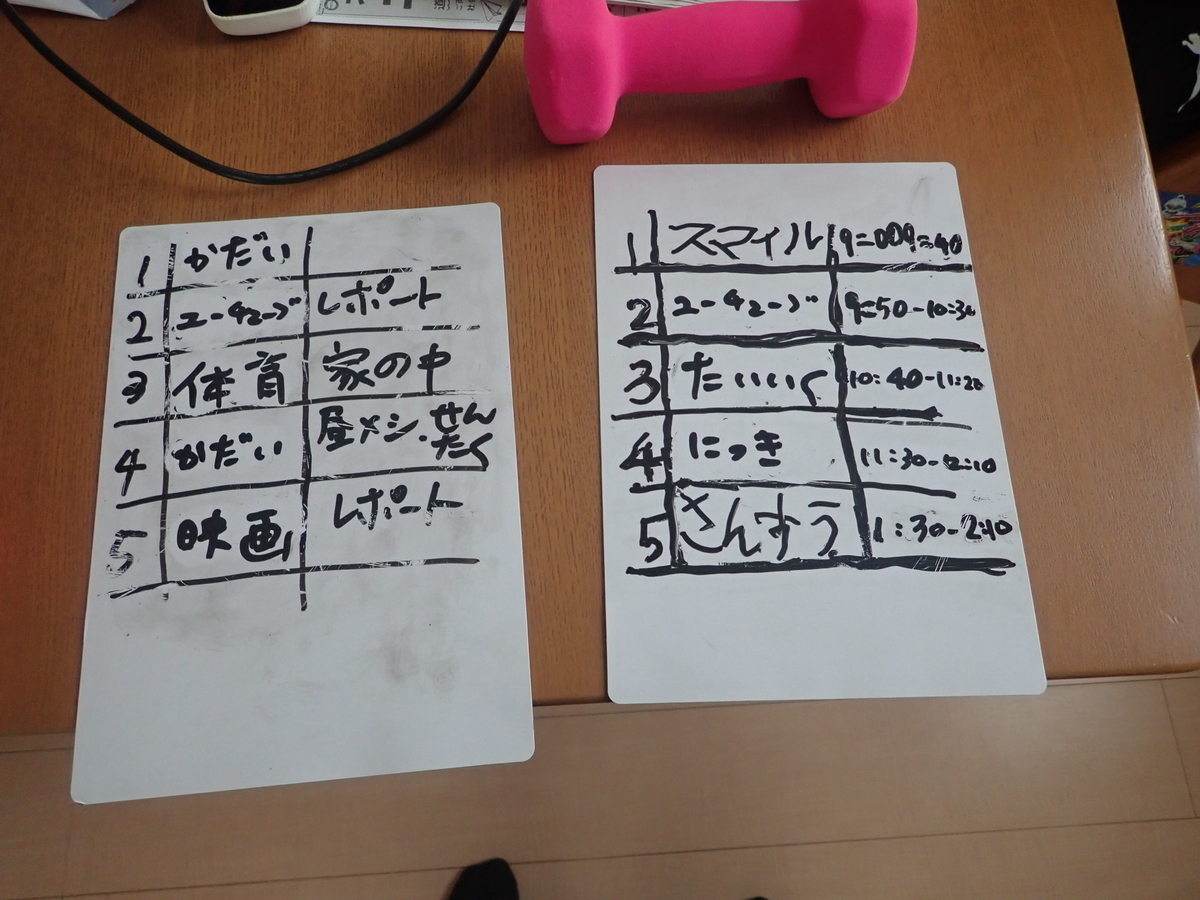 1 かだい
2 ユーチューブ レポート
3 体育 家の中
4 かだい 昼メシ.せんたく
5 映画 レポート
1 スマイル 9=009=40
2 ユーチューブ 9=50-10:30
3 たいいく 10:40-11:20
4 にっき 11:30-12:10
5 さんすう 1:30-2:10